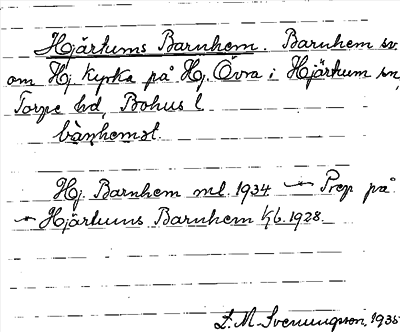 Hjärtums Barnhem. Barnhem sv.
om Hj. kyrka på Hj. Övra i Hjärtum sn,
Torpe hd, Bohus l.
bànhemət
Hj. Barnhem ml. 1934 — Prep på
— Hjärtums Barnhem Kb. 1928.
L. M. Svenungson 1935